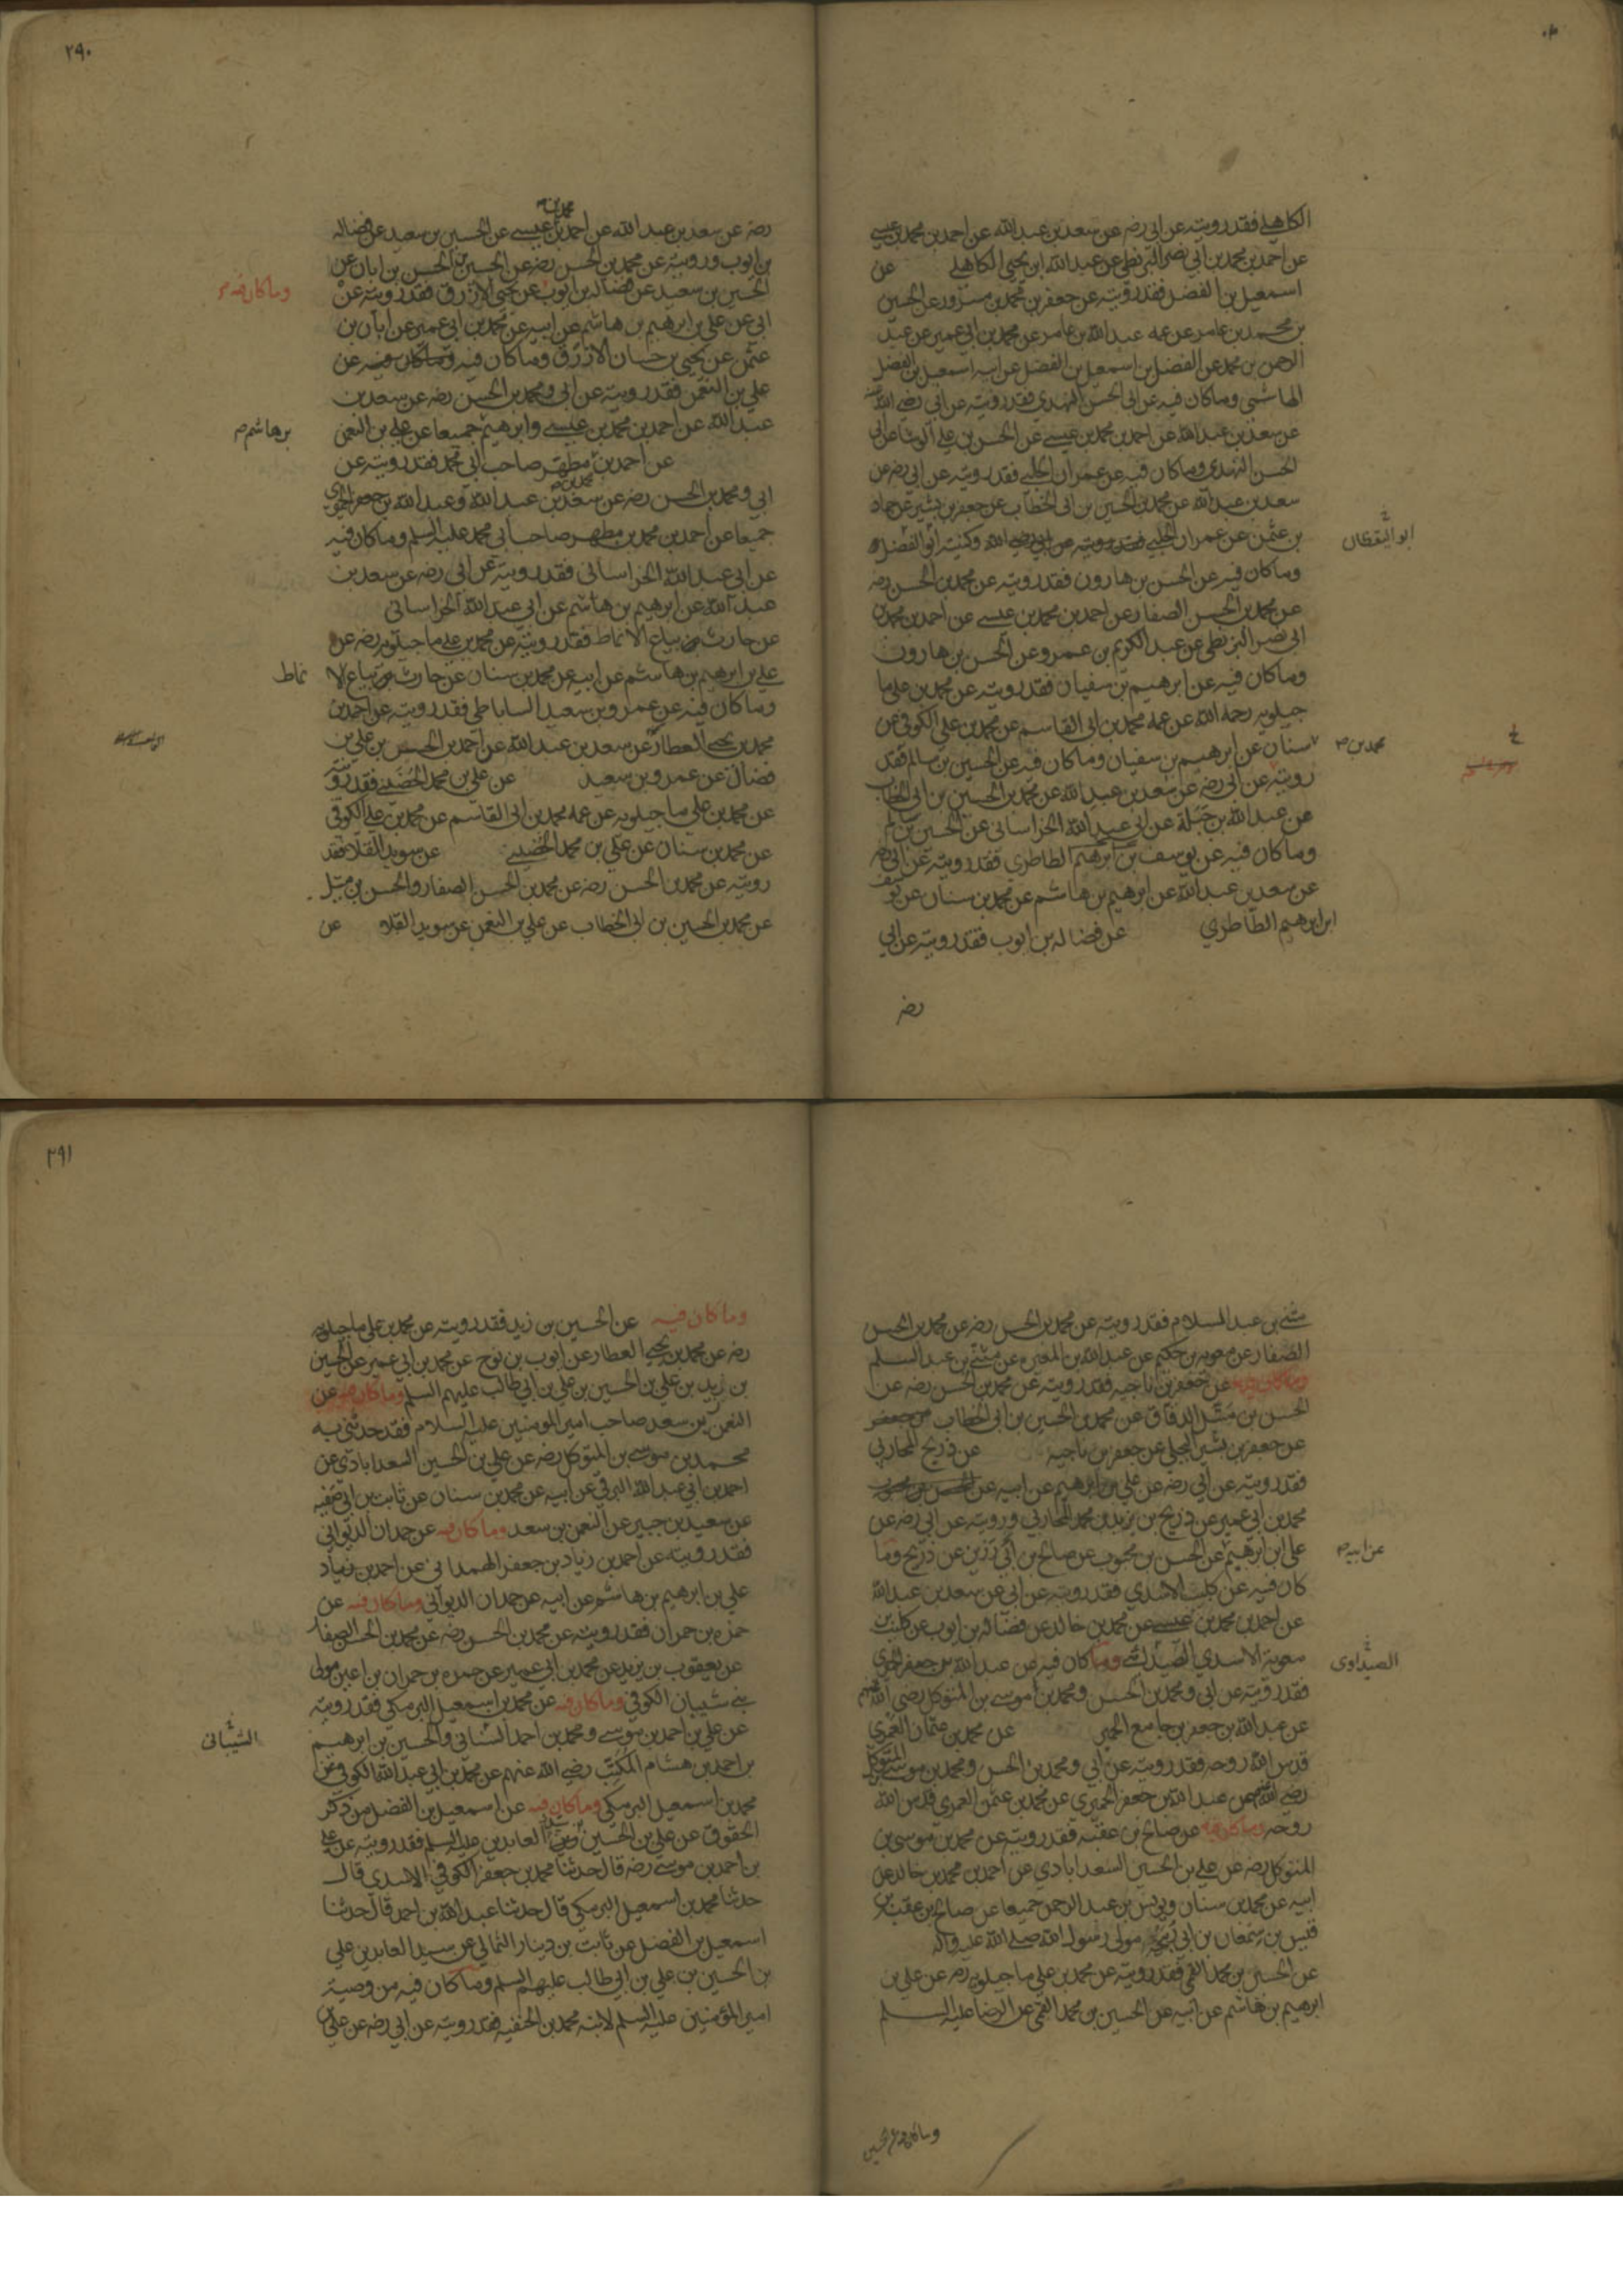 الكاهلي فقد رويته عن ابي رضه عن سعد بن عبد الله عن احمد بن محمد بن عيسى
عن احمد بن محمد بن ابي نصر البزنطي عن عبد الله ابن يحيى الكاهلي عن
اسمعيل بن الفضل فقد رويته عن جعفر بن محمد بن مسرور عن الحسين
بن محمد بن عامر عن عمه عبد الله بن عامر عن محمد بن ابي عمير عن عبد
الرحمن بن محمد عن الفضل بن اسمعيل بن الفضل عن ابيه اسمعيل بن الفضل
الهاشمي وما كان فيه عن ابي الحسن النهدي فقد رويته عن ابي رضي الله عنه
عن سعد بن عبد الله عن احمد بن محمد بن عيسى عن الحسن بن علي الوشا عن ابي
الحسن النهدي وما كان فيه عن عمران الحلبي فقد رويته عن ابي رضه عن
سعد بن عبد الله عن محمد بن الحسين بن ابي الخطاب عن جعفر بن بشير عن حماد
بن عثمن عن عمران الحلبي وكنيته ابو الفضل
ابو اليقظان
وما كان فيه عن الحسن بن هارون فقد رويته عن محمد بن الحسن رضه
عن محمد بن الحسن الصفار عن احمد بن محمد بن عيسى عن احمد بن محمد بن
ابي نصر البزنطي عن عبد الكريم بن عمرو عن الحسن بن هارون
وما كان فيه عن ابرهيم بن سفيان فقد رويته عن محمد بن علي ما
جيلويه رحمه الله عن عمه محمد بن ابي القاسم عن محمد بن علي الكوفي عن
محمد بن
سنان عن ابرهيم بن سفيان وما كان فيه عن الحسين بن سالم فقد
رويته عن ابي رضه عن سعد بن عبد الله عن محمد بن الحسين بن ابي الخطاب
عن عبد الله بن جبلة عن ابي عبد الله الخراساني عن الحسين بن سالم
وما كان فيه عن يوسف بن ابرهيم الطاطري فقد رويته عن ابي رضه
عن سعد بن عبد الله عن ابرهيم بن هاشم عن محمد بن سنان عن يوسف
ابن ابرهيم الطاطري عن فضاله بن ايوب فقد رويته عن ابي
رضه
٢٩٠
محمد بن
رضه عن سعد بن عبد الله عن احمد بن عيسى عن الحسين بن سعيد عن فضاله
بن ايوب ورويته عن محمد بن الحسن رضه عن الحسين بن الحسن بن ابان عن
الحسين بن سعيد عن فضاله بن ايوب عن يحيى الازرق فقد رويته عن
وما كان فيه
ابي عن علي بن ابرهيم بن هاشم عن ابيه عن محمد بن ابي عمير عن ابان بن
عثمن عن يحيى بن حسان الازرق وما كان فيه عن
علي بن النعمن فقد رويته عن ابي ومحمد بن الحسن رضه عن سعد بن
عبد الله عن احمد بن محمد بن عيسى وابرهيم جميعا عن علي بن النعمن
بن هاشم
عن احمد بن مطهر صاحب ابي محمد فقد رويته عن
محمد بن
ابي ومحمد بن الحسن رضه عن سعد بن عبد الله وعبد الله بن جعفر الحميري
جميعا عن احمد بن محمد بن مطهر صاحب ابي محمد عليه السلم وما كان فيه
عن ابي عبد الله الخراساني فقد رويته عن ابي رضه عن سعد بن
عبد الله عن ابرهيم بن هاشم عن ابي عبد الله الخراساني
عن حارث بياع الانماط فقد رويته عن محمد بن علي ماجيلويه رضه عن
علي بن ابرهيم بن هاشم عن ابيه عن محمد بن سنان عن حارث بياع الا
نماط
وما كان فيه عن عمرو بن سعيد الساباطي فقد رويته عن احمد بن
محمد بن يحيى العطار عن سعد بن عبد الله عن احمد بن الحسن بن علي بن
فضال عن عمرو بن سعيد عن علي بن محمد الحضيني فقد رويته
عن محمد بن علي ماجيلويه عن عمه محمد بن ابي القاسم عن محمد بن علي الكوفي
عن محمد بن سنان عن علي بن محمد الحضيني عن سويد القلا فقد
رويته عن محمد بن الحسن رضه عن محمد بن الحسن الصفار والحسن بن متيل
عن محمد بن الحسين بن ابي الخطاب عن علي بن النعمن عن سويد القلا عن
مثنى بن عبد السلام فقد رويته عن محمد بن الحسن رضه عن محمد بن الحسن
الصفار عن معويه بن حكيم عن عبد الله بن المغيره عن مثنى بن عبد السلم
وما كان فيه عن جعفر بن ناجيه فقد رويته عن محمد بن الحسن رضه عن
الحسن بن متيل الدقاق عن محمد بن الحسين بن ابي الخطاب
عن جعفر بن بشير البجلي عن جعفر بن ناجيه عن ذريح المحاربي
فقد رويته عن ابي رضه عن علي بن ابرهيم عن ابيه عن
محمد بن ابي عمير عن ذريح بن يزيد بن محمد المحاربي ورويته عن ابي رضه عن
علي ابن ابرهيم عن الحسن بن محبوب عن صالح بن رزين عن ذريح وما
عن ابيه
كان فيه عن كليب الاسدي فقد رويته عن ابي عن سعد بن عبد الله
عن احمد بن محمد بن عيسى عن محمد بن خالد عن فضاله بن ايوب عن كليب بن
معوية الاسدي وما كان فيه عن عبد الله بن جعفر الحميري
الصيداوي
فقد رويته عن ابي ومحمد بن الحسن ومحمد بن موسى بن المتوكل رضي الله عنهم
عن عبد الله بن جعفر بن جامع الحميري عن محمد بن عثمان العمري
قدس الله روحه فقد رويته عن ابي ومحمد بن الحسن ومحمد بن موسى المتوكل
رضي الله عنهم عن عبد الله بن جعفر الحميري عن محمد بن عثمن العمري قدس الله
روحه وما كان فيه عن صالح بن عقبه فقد رويته عن محمد بن موسى بن
المتوكل رضه عن علي بن الحسين السعدابادي عن احمد بن محمد بن خالد عن
ابيه عن محمد بن سنان ويونس بن عبد الرحمن جميعا عن صالح بن عقبه بن
قيس بن سمعان بن ابي ربيحه مولى رسول الله صلى الله عليه واله
عن الحسين بن محمد القمي فقد رويته عن محمد بن علي ماجيلويه رضه عن علي بن
ابرهيم بن هاشم عن ابيه عن الحسين بن محمد القمي عن الرضا عليه السلم
وما كان فيه عن الحسين
٢٩١
وما كان فيه عن الحسين بن زيد فقد رويته عن محمد بن علي ماجيلويه
رضه عن محمد بن يحيى العطار عن ايوب بن نوح عن محمد بن ابي عمير عن الحسين
بن زيد بن علي بن الحسين بن علي بن ابي طالب عليهم السلم وما كان فيه عن
النعمن بن سعد صاحب امير المومنين عليه السلام فقد حدثني به
محمد بن موسى بن المتوكل رضه عن علي بن الحسين السعدابادي عن
احمد بن ابي عبد الله البرقي عن ابيه عن محمد بن سنان عن ثابت بن ابي صفيه
عن سعيد بن جبير عن النعمن بن سعد وما كان فيه عن حمدان الديواني
فقد رويته عن احمد بن زياد بن جعفر الهمداني عن احمد بن زياد
علي بن ابرهيم بن هاشم عن ابيه عن حمدان الديواني وما كان فيه عن
حمزه بن حمران فقد رويته عن محمد بن الحسن رضه عن محمد بن الحسن الصفار
عن يعقوب بن يزيد عن محمد بن ابي عمير عن حمزه بن حمران بن اعين مولى
بني شيبان الكوفي وما كان فيه عن محمد بن اسمعيل البرمكي فقد رويته
عن علي بن احمد بن موسى ومحمد بن احمد السناني والحسين بن ابرهيم
الشيباني
بن احمد بن هشام المكتب رضي الله عنهم عن محمد بن ابي عبد الله الكوفي عن
محمد بن اسمعيل البرمكي وما كان فيه عن اسمعيل بن الفضل من ذكر
الحقوق عن علي بن الحسين زين العابدين عليه السلم فقد رويته عن علي
بن احمد بن موسى رضه قال حدثنا محمد بن جعفر الكوفي الاسدي قال
حدثنا محمد بن اسمعيل البرمكي قال حدثنا عبد الله بن احمد قال حدثنا
اسمعيل بن الفضل عن ثابت بن دينار الثمالي عن سيد العابدين علي
بن الحسين بن علي بن ابي طالب عليهم السلم وما كان فيه من وصية
امير المؤمنين عليه السلم لابنه محمد بن الحنفيه فقد رويته عن ابي رضه عن علي بن